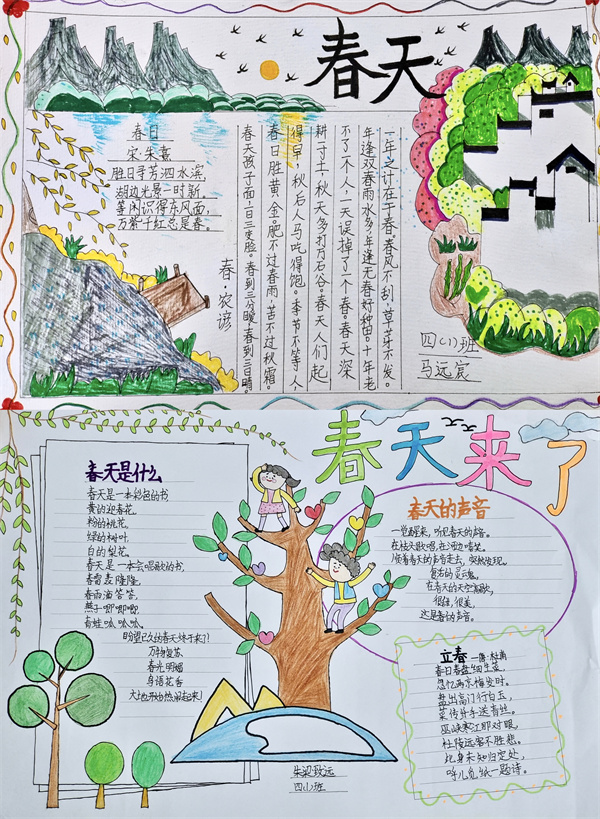 春天
春日
宋朱熹
胜日寻芳泗水滨,
湖边光景一时新,
等闲识得东风面,
万紫千红总是春。
春·农谚
一年之计在于春。春风不刮,草芽不发。
年逢双春雨水多,年逢无春好种田。十年老
不了一个人,一天误掉了一个春。春天深
耕一寸土,秋天多打万石谷。春天人们起
得早,秋后人马吃得饱。季节不等人
春日胜黄金。肥不过春雨,苦不过秋霜。
春天孩子面,一日三变脸。春到三分暖。春到三日晴。
四(1)班
马远宸
春天来了
春天是什么
春天是一本彩色的书,
黄的迎春花,
粉的桃花,
绿的树叶,
白的梨花。
春天是一本会唱歌的书,
春雷轰隆隆,
春雨滴答答,
燕子唧唧唧,
青蛙呱呱呱。
盼望已久的春天终于来了!
万物复苏
春光明媚
鸟语花香
大地开始热闹起来!
春天的声音
一觉醒来,听见春天的声音。
在枝头歌唱,在河边嬉笑。
顺着春天的声音走去,突然发现。
复苏的
在春天的天空
很轻,很美,
这是春的声音。
立春 —唐·杜甫
春日春盘细生菜,
忽忆两京梅发时。
盘出高门行白玉,
菜传纤手送青丝。
巫峡寒江那对眼,
杜陵远客不胜悲。
此身未知归定处,
呼儿觅纸一题诗。
朱梁致远
四(1)班